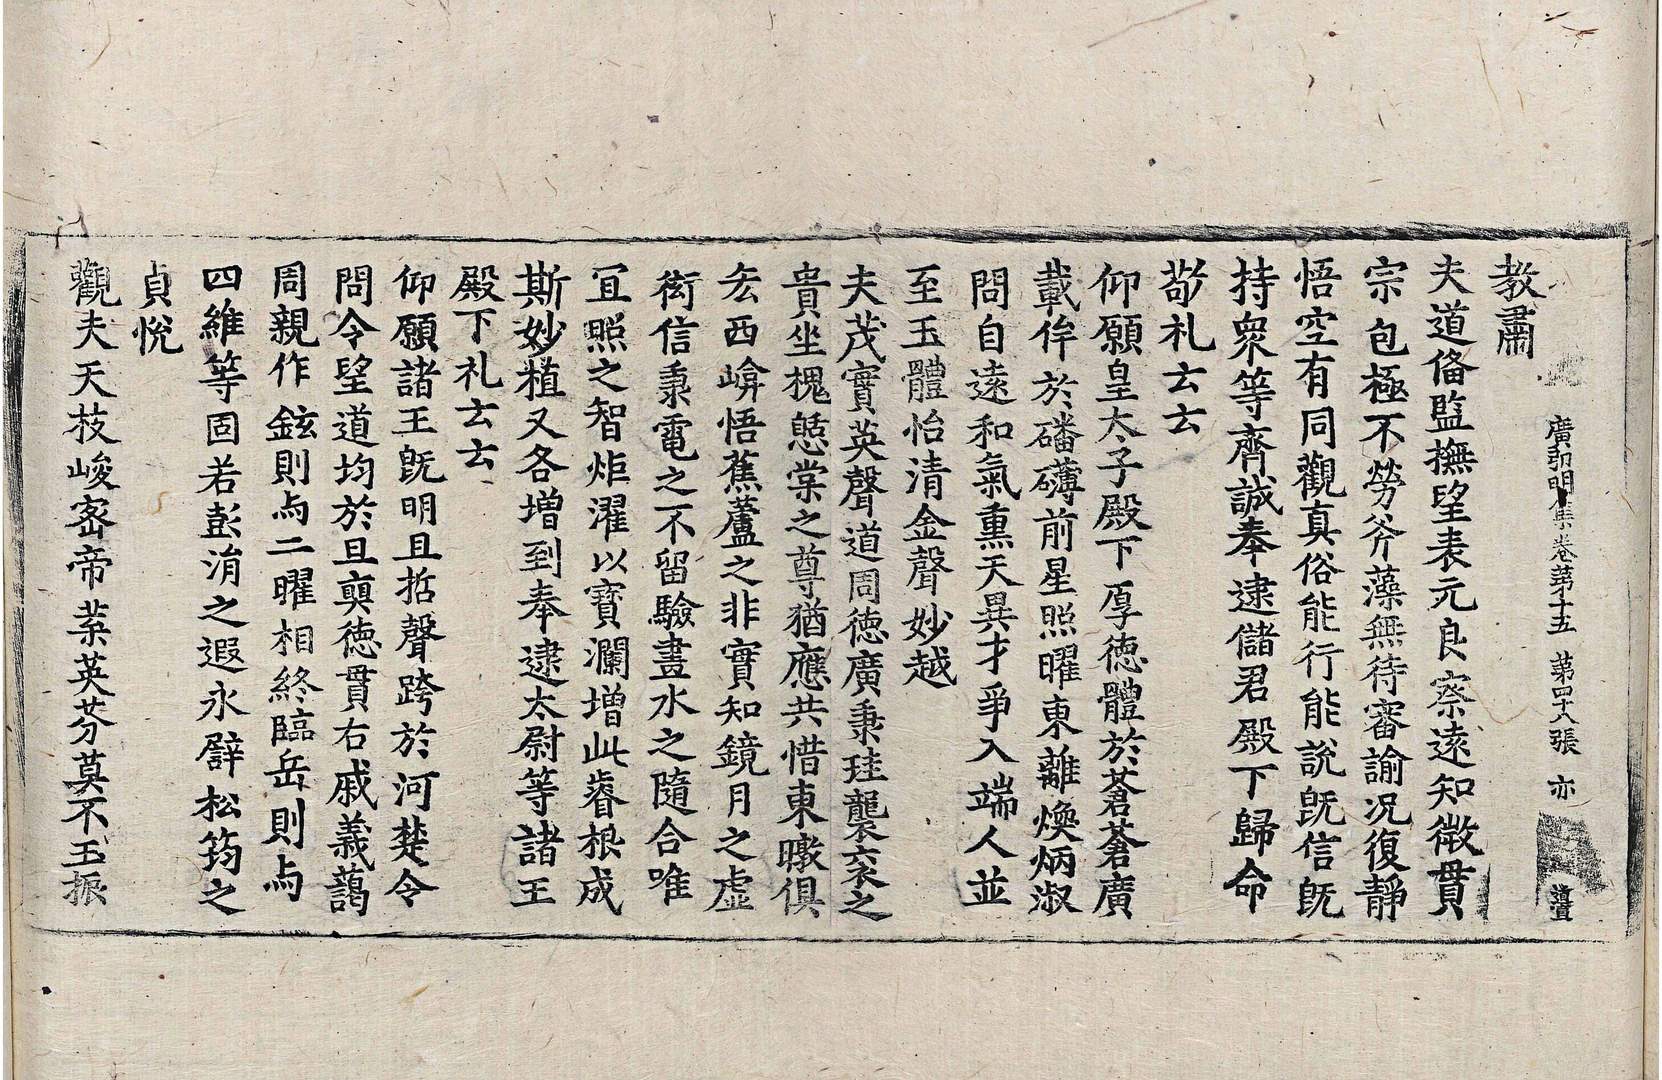 廣弘明集卷第十五　第四十八張　亦
教肅
夫道俻監撫望表元良察遠知微貫
宗包極不勞斧藻無待審諭况復静
悟空有同觀真俗能行能說旣信旣
持衆等齊誠奉逮儲君殿下歸命
敬礼云云
仰願皇太子殿下厚德體於蒼蒼廣
載侔於磻礴前星照曜東離煥炳淑
問自遠和氣熏天異才爭入端人並
至玉體怡清金聲妙越
夫茂實英聲道周德廣秉珪襲衮之
貴坐槐憩棠之尊猶應共惜東曒俱
㤎西崦悟蕉蘆之非實知鏡月之虛
衒信秉電之不留驗畫水之隨合唯
冝照之智炬濯以寶瀾增此睿根成
斯妙植又各增到奉逮太尉等諸王
殿下礼云云
仰願諸王旣明且哲聲跨於河楚令
問令望道均於旦奭德貫右戚義藹
周親作鉉則与二曜相終臨岳則与
四維等固若彭涓之遐永譬松筠之
貞悅
觀夫天枝峻密帝葉英芬莫不玉振